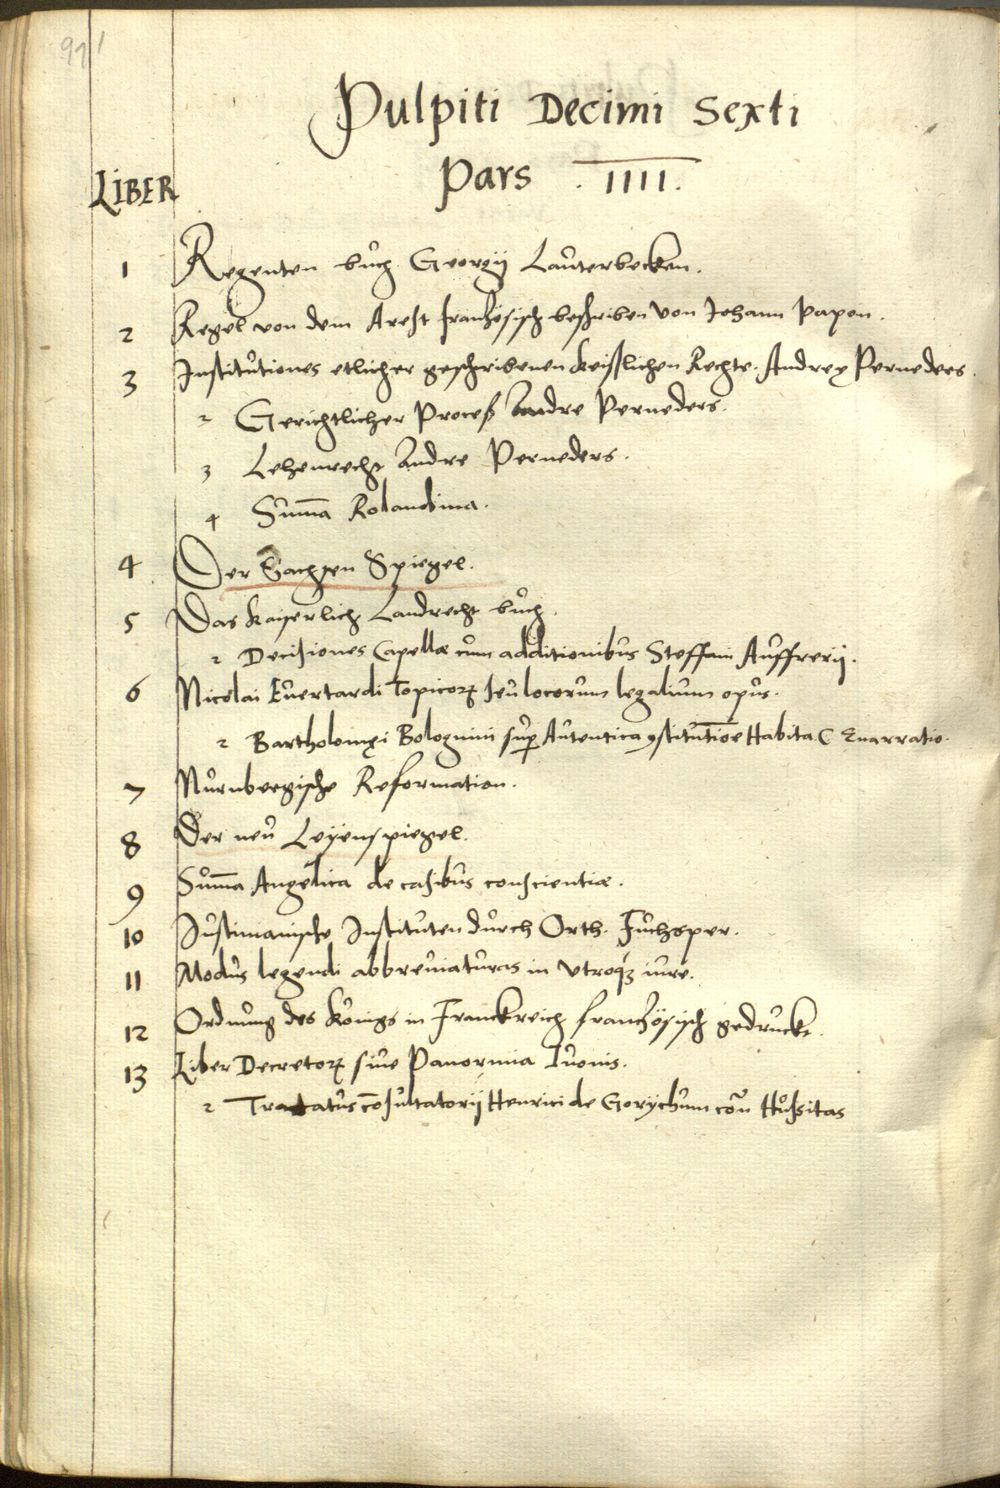 91
Pulpiti Decimi Sexti
Pars . IIII.
LIBER
1 Regenten bůch Georgij Lauterbecken.
2 Regel von dem Arest französisch beschriben von Johann Papon.
3 Institutiones etlicher geschribenen keißlichen Rechte. Andrex Perneders.
2 Gerichtlicher Proceß Andre Perneders.
3 Lehenrecht Andre Perneders.
4 Sum̄a Rolandina.
4 Der Sachsen Spiegel.
5 Das Kaiserlich Landrecht bůch.
2 Decisiones Capellæ cum additionibus Steffani Auffrerij.
6 Nicolai Euertardi Topicorꝝ seu locorum legalium opus.
2 Bartholomęi Bolognini suꝑ Autentica ꝯstitutiōe Habita C Enarratio.
7 Nurnbergische Reformation.
8 Der neu Leyenspiegel.
9 Sum̄a Angelica de casibus conscientiæ.
10 Justinianische Instituten durch Orth. Fuchsper.
11 Modus legendi abbreuiaturas in vtroqꝫ iure.
12 Ordnung des Königs in Franckreich französisch gedruckt.
13 Liber Decretorꝝ siue Panormia Iuonis.
2 Tractatus cōsultatorij Henrici de Gorychum Hussitas